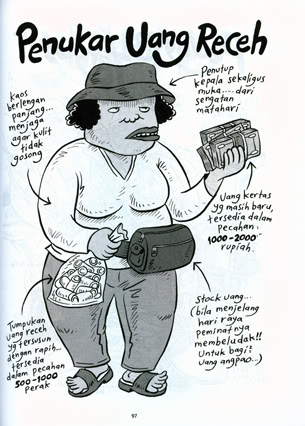 Penukar Uang Receh
kaos
berlengan
panjang...
menjaga
agar kulit
tidak
gosong
Penutup
kepala sekaligus
muka.... dari
sengatan
matahari
Uang kertas
yg masih baru,
tersedia dalam
pecahan
1000-2000
rupiah.
Stock uang...
(bila menjelang
hari raya
peminatnya
membeludak!!
Untuk bagi2
uang angpao...)
Tumpukan
uang receh
yg tersusun
dengan rapih...
tersedia
dalam pecahan
500-1000
perak
97